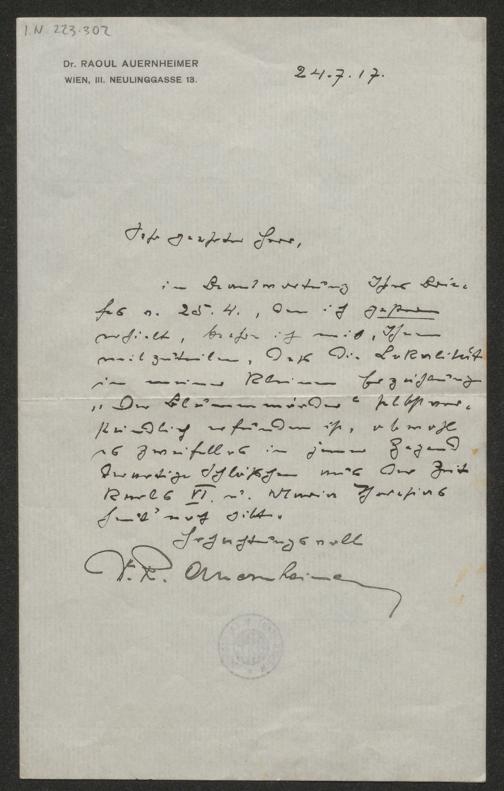 I.N. 223.302
Dr. RAOUL AUERNHEIMER
WIEN, III. NEULINGGASSE 13.
24.7.17.
Sehr geehrter Herr,
in Beantwortung Ihres Brie-
fes v. 25.4., den ich gestern
erhielt, beehre ich mich, Ihnen
mitzuteilen, daß die Lokalität
in meiner kleinen Erzählung
"Der Blumenmörder" selbstver-
ständlich erfunden ist, obwohl
es zweifellos in jener Gegend
derartige Schlößchen aus der Zeit
Karls VI. u. Maria Theresias
heut' noch gibt.
Hochachtungsvoll
Dr. R. Auernheimer